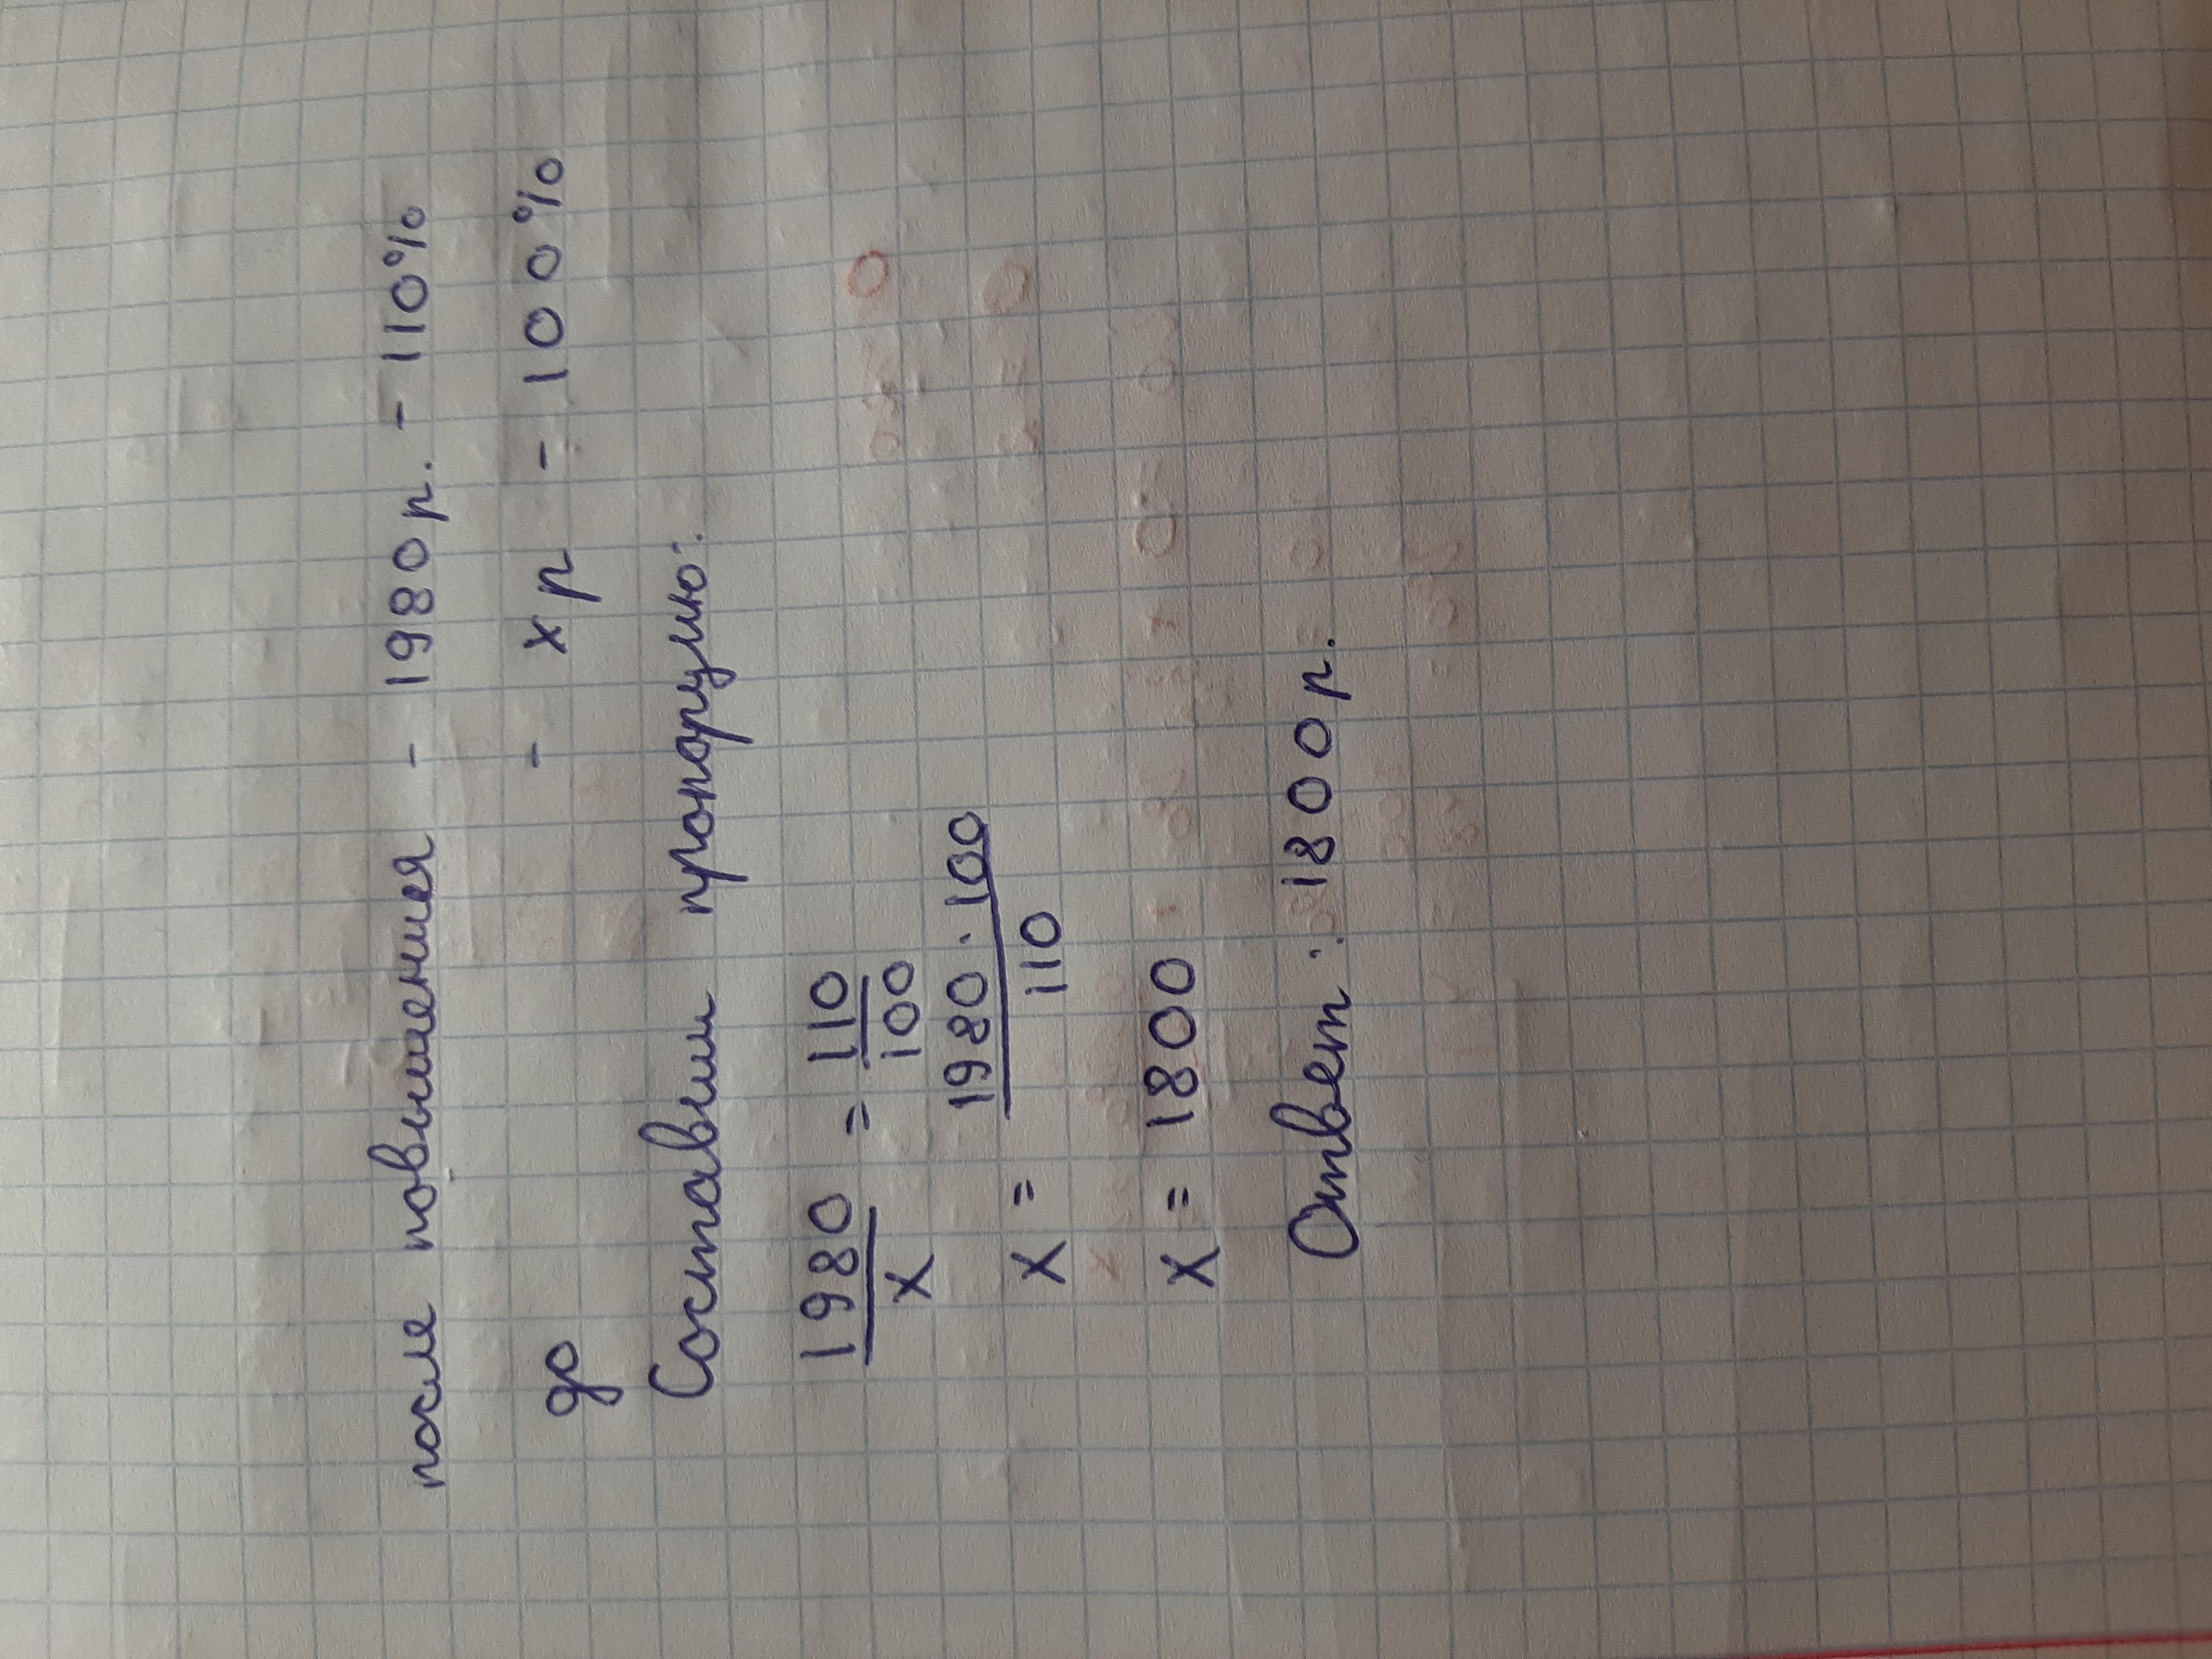 после повышения - 1980 р. - 110%
до - x р - 100%
Составим пропорцию:
1980/x = 110/100
x = 1980·100/110
x = 1800
Ответ: 1800 р.